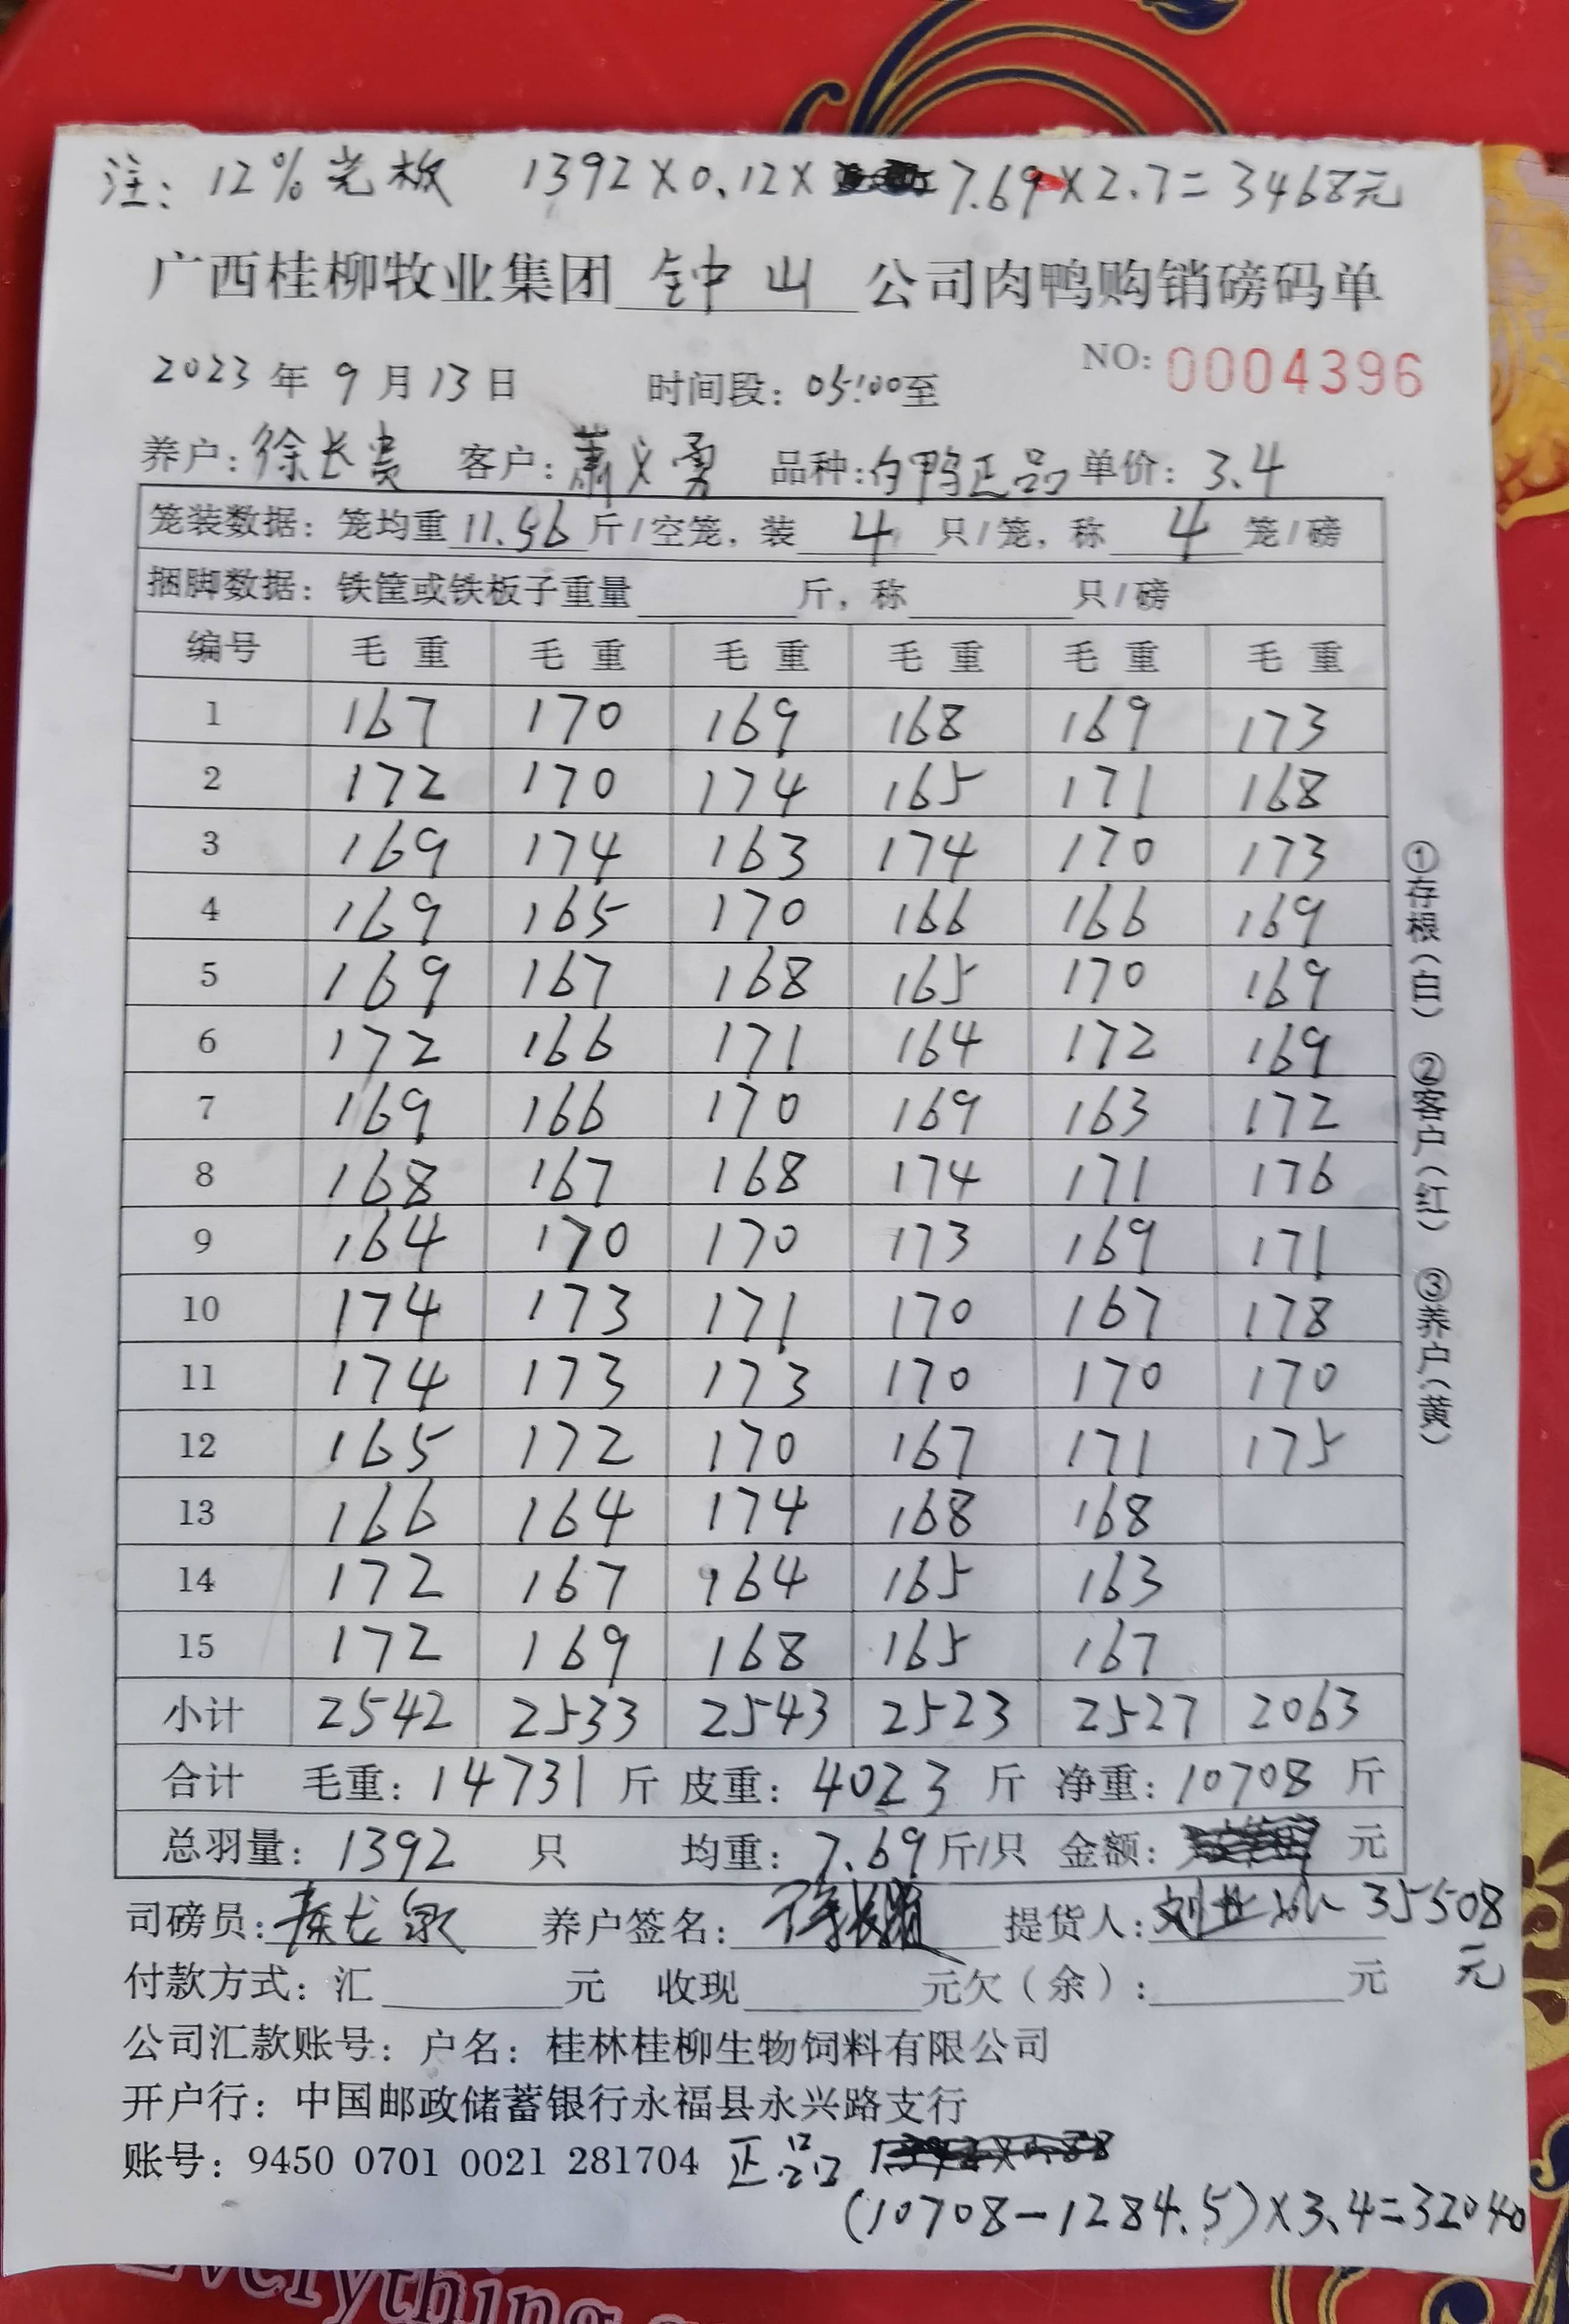 注: 12%光板 1392×0.12×7.69×2.7=3468元
广西桂柳牧业集团 钟山 公司肉鸭购销磅码单
NO: 0004396
2023年9月13日 时间段: 05:00至
养户: 徐长贵 客户: 萧义勇 品种: 白鸭正品 单价: 3.4
笼装数据: 笼均重 11.56 斤/空笼, 装 4 只/笼, 称 4 笼/磅
捆脚数据: 铁筐或铁板子重量 斤, 称 只/磅
编号 毛重 毛重 毛重 毛重 毛重 毛重
1 167 170 169 168 169 173
2 172 170 174 165 171 168
3 169 174 163 174 170 173
4 169 165 170 166 166 169
5 169 167 168 165 170 169
6 172 166 171 164 172 169
7 169 166 170 169 163 172
8 168 167 168 174 171 176
9 164 170 170 173 169 171
10 174 173 171 170 167 178
11 174 173 173 170 170 170
12 165 172 170 167 171 175
13 166 164 174 168 168
14 172 167 164 165 163
15 172 169 168 165 167
小计 2542 2533 2543 2523 2527 2063
合计 毛重: 14731 斤 皮重: 4023 斤 净重: 10708 斤
总羽量: 1392 只 均重: 7.69 斤/只 金额: 元
司磅员: 养户签名: 提货人: 35508
元
付款方式: 汇 元 收现 元欠(余): 元
公司汇款账号: 户名: 桂林桂柳生物饲料有限公司
开户行: 中国邮政储蓄银行永福县永兴路支行
账号: 9450 0701 0021 281704 正品
(10708-1284.5)×3.4=32040
①存根(白) ②客户(红) ③养户(黄)
Everything